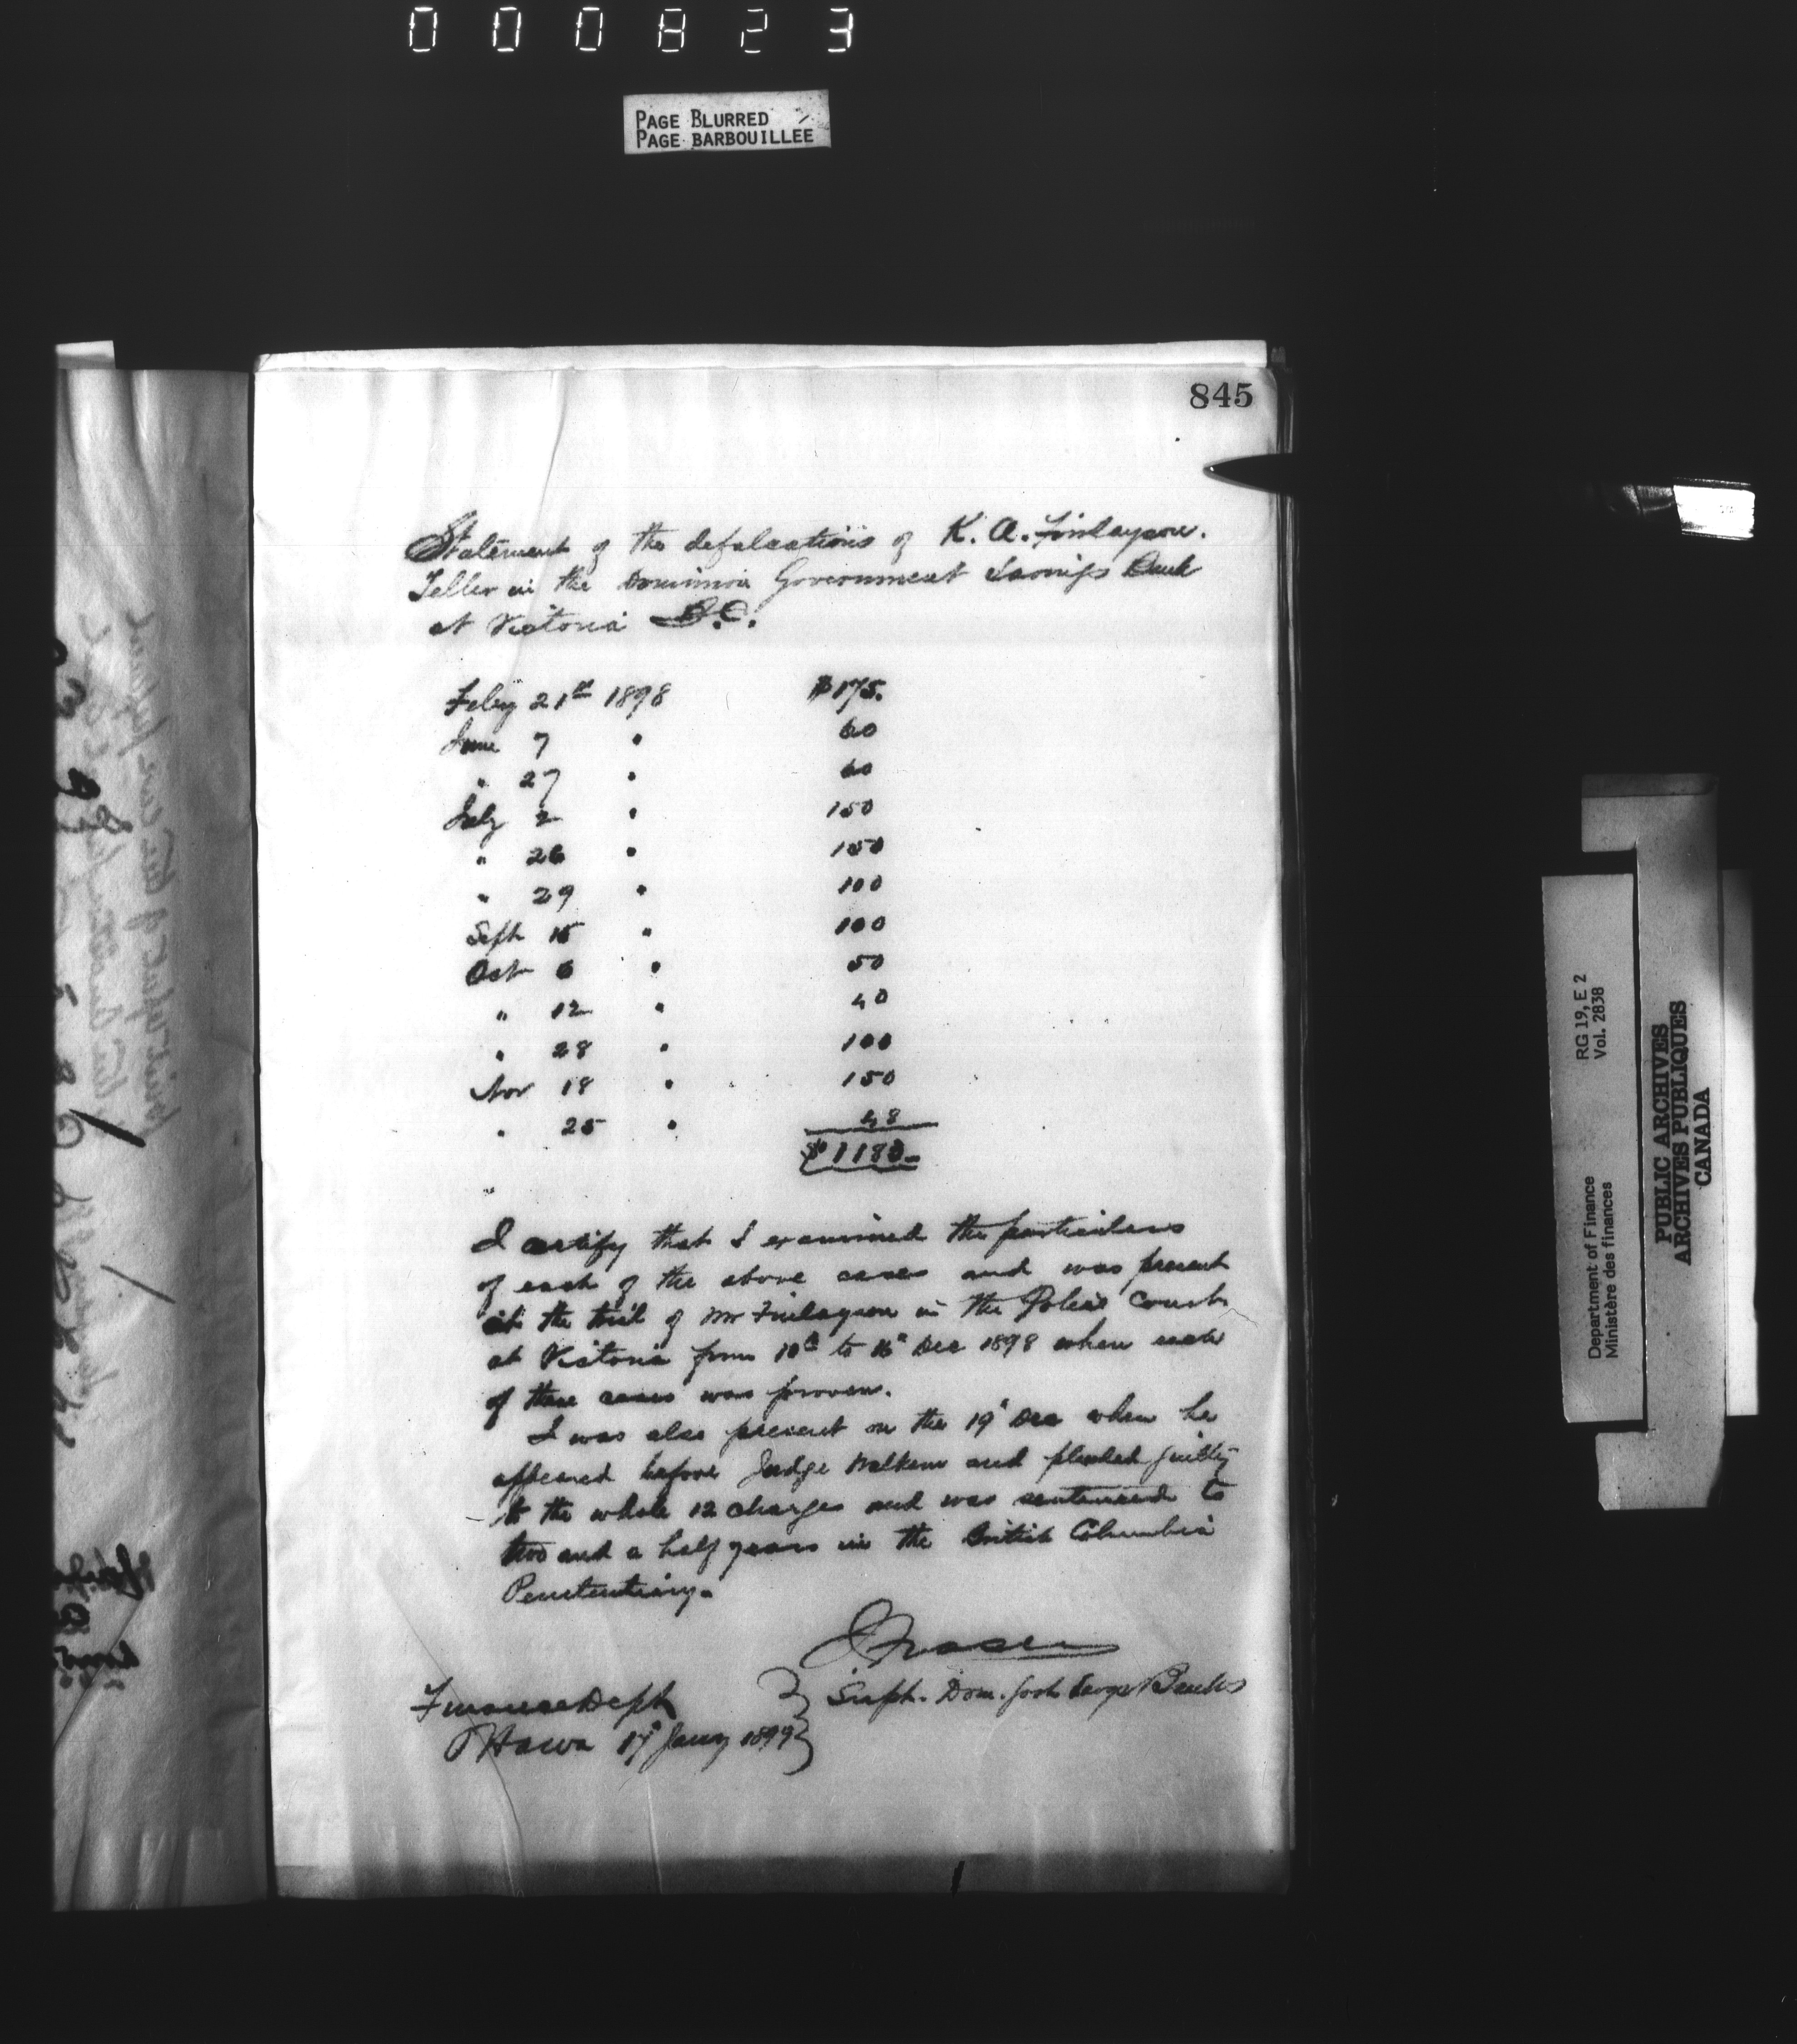 000823
PAGE BLURRED
PAGE BARBOUILLÉE
845
Statement of the defalcations of K. A. Finlayson.
Teller in the Dominion Government Savings Bank
at Victoria B.C.
Feby 21st 1898 $175.
June 7 " 60
" 27 " 60
July 2 " 150
" 26 " 150
" 29 " 100
Sept 15 " 100
Oct 6 " 50
" 12 " 40
" 28 " 100
Nov 18 " 150
" 25 " 48
$1183-
I certify that I examined the particulars
of each of the above cases and was present
at the trial of Mr Finlayson in the Police Court
at Victoria from 10th to 16th Dec 1898 when each
of these cases was proven.
I was also present on the 19th Dec when he
appeared before Judge Walkem and pleaded guilty
to the whole 12 charges and was sentenced to
two and a half years in the British Columbia
Penitentiary.
J Fraser
Supt. Dom. Govt Savgs Banks
Finance Dept
Ottawa 17th Jany 1899
RG 19, E 2
Vol. 2838
Department of Finance
Ministère des finances
PUBLIC ARCHIVES
ARCHIVES PUBLIQUES
CANADA